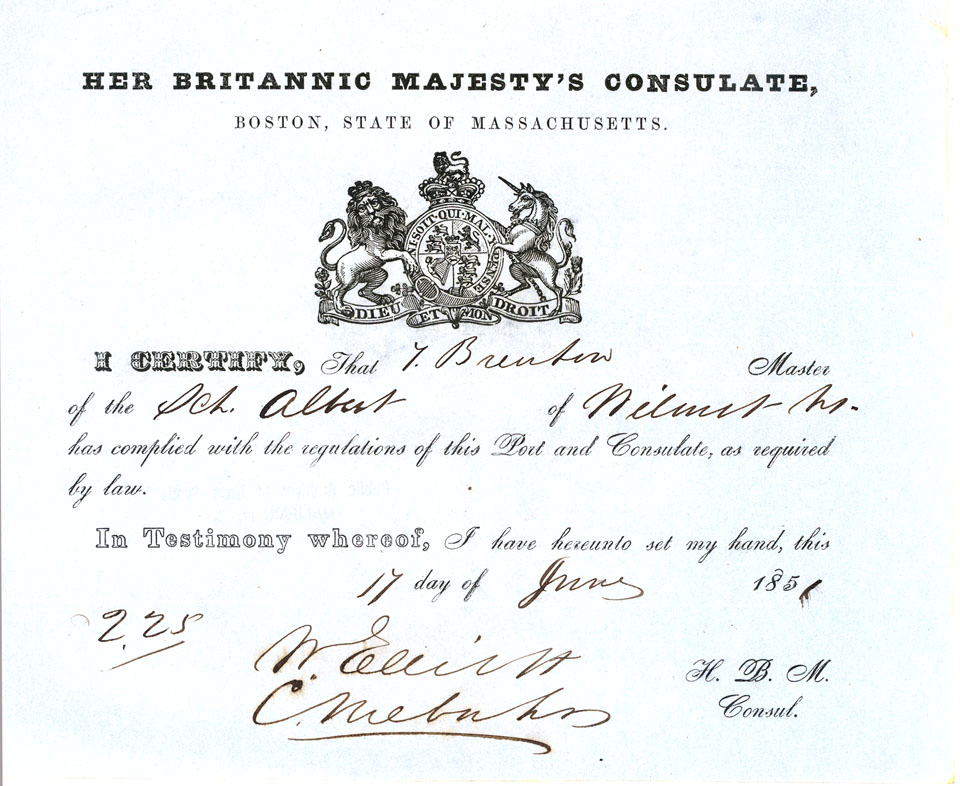 HER BRITANNIC MAJESTY'S CONSULATE,
BOSTON, STATE OF MASSACHUSETTS.
SOIT·QUI·MAL·Y PENSE
DIEU ET MON DROIT
I CERTIFY, That T. Brenton Master
of the Sch. Albert of Wilmot Ns.
has complied with the regulations of this Port and Consulate, as required
by law.
In Testimony whereof, I have hereunto set my hand, this
17 day of June 1851
2.25
W. Elliott
H. B. M.
Consul.